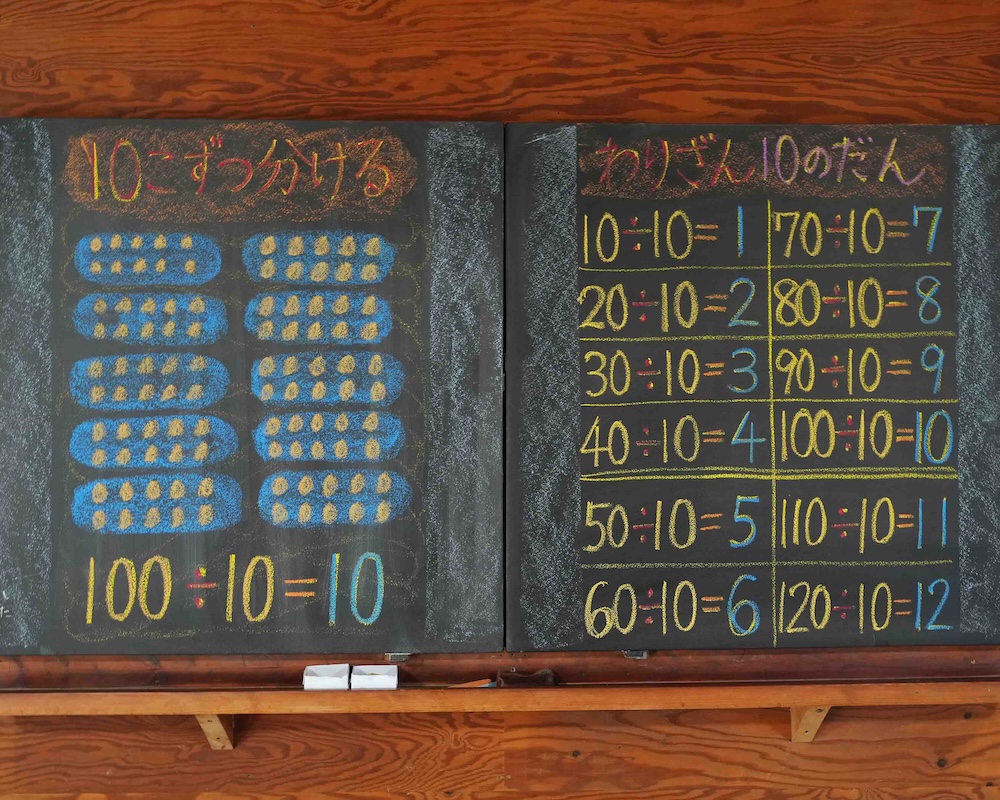 10こずつ分ける
100÷10=10
わりざん10のだん
10÷10=1
20÷10=2
30÷10=3
40÷10=4
50÷10=5
60÷10=6
70÷10=7
80÷10=8
90÷10=9
100÷10=10
110÷10=11
120÷10=12